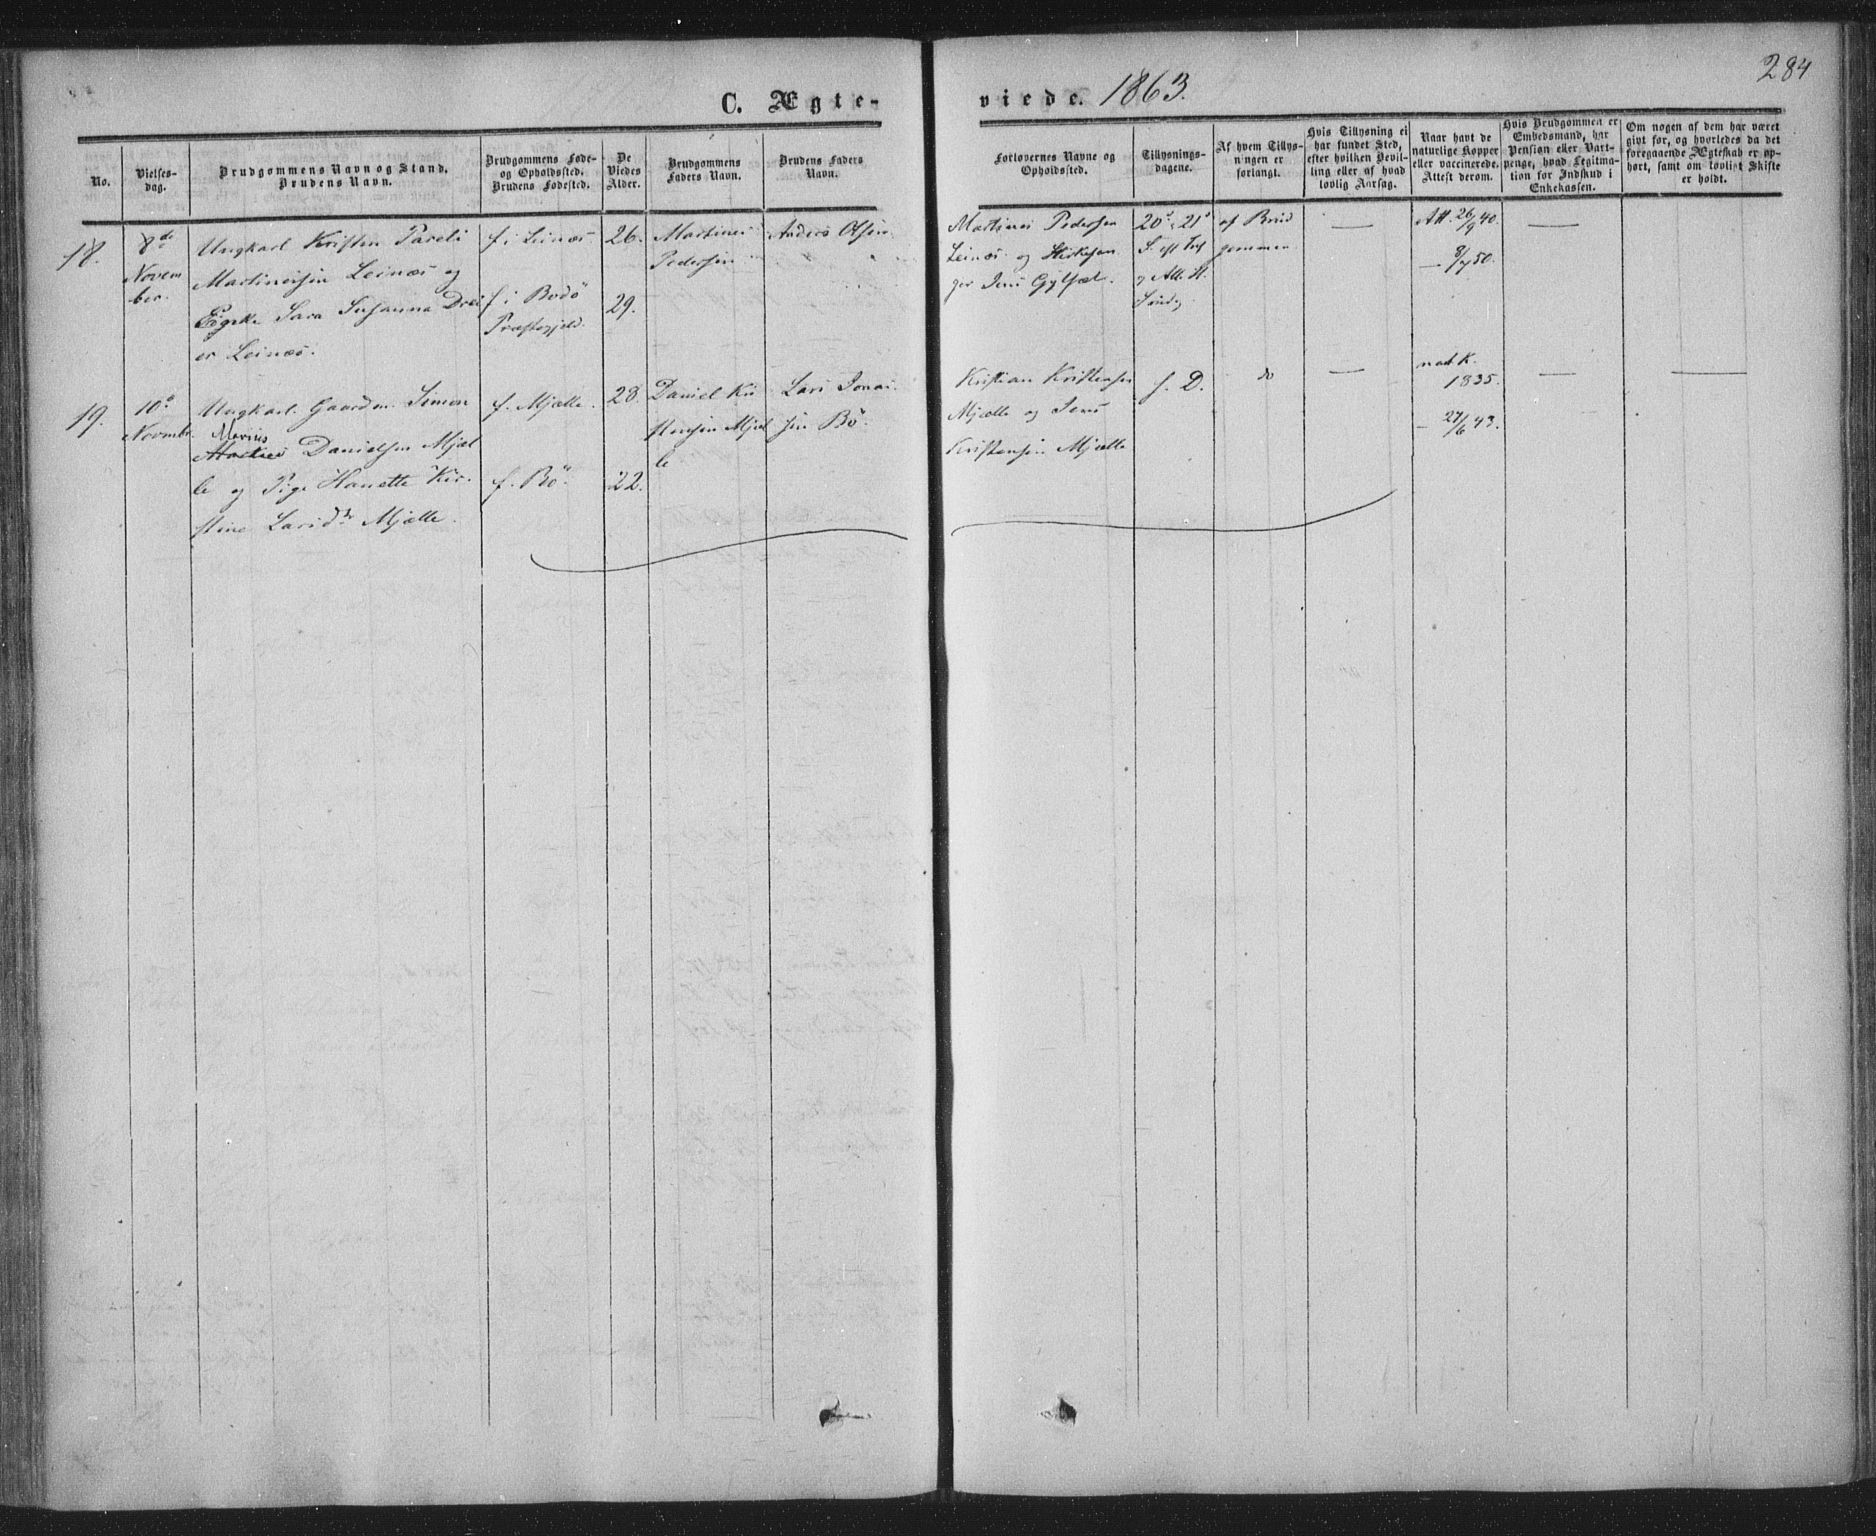 284
C. Ægte-
viede. 1863.
No.
Vielses-
dag.
Brudgommens Navn og Stand.
Brudens Navn.
Brudgommens Føde-
og Opholdssted.
Brudens Fødested.
De
Viedes
Alder.
Brudgommens
Faders Navn.
Brudens Faders
Navn.
Forlovernes Navne og
Opholdssted.
Tillysnings-
dagene.
Af hvem Tillys-
ningen er
forlangt.
Hvis Tillysning ei
har fundet Sted,
efter hvilken Bevil-
ling eller af hvad
lovlig Aarsag.
Naar havt de
naturlige Kopper
eller vaccinerede.
Attest derom.
Hvis Brudgommen er
Embedsmand, har
Pension eller Vart-
penge, hvad Legitima-
tion for Indskud i
Enkekassen.
Om nogen af dem har været
gift før, og hvorledes da det
foregaaende Ægteskab er op-
hørt, samt om lovligt Skifte
er holdt.
18.
8de
Novem
ber.
Ungkarl Kristen Pareli
Martinussen Leinæs og
Pige Sara Susanna
Leinæs.
f. i Leinæs
f. i Bodö
Præstegjeld.
26.
29.
Martinus
Pedersen
Anders Olsen
Martinus Pedersen
Leinæs og
Jens Gylset.
20de 21de
S. eft Tref
af Brud
gommen
Att. 26/9 40.
— 8/7 50.
19.
10de
Novmbr.
Ungkarl Gaardm. Simon
Marius
Danielsen Mjel
le og Pige Hanette Kir-
stine Larsdtr Mjelle.
f. Mjælle.
f. Bö
28.
22.
Daniel Kri
stensen Mjel
le
Lars Jonas
sen Bö.
Kristian Kristensen
Mjælle og Jens
Kristensen Mjelle
f. D.
do
nat K.
1835.
— 27/6 43.